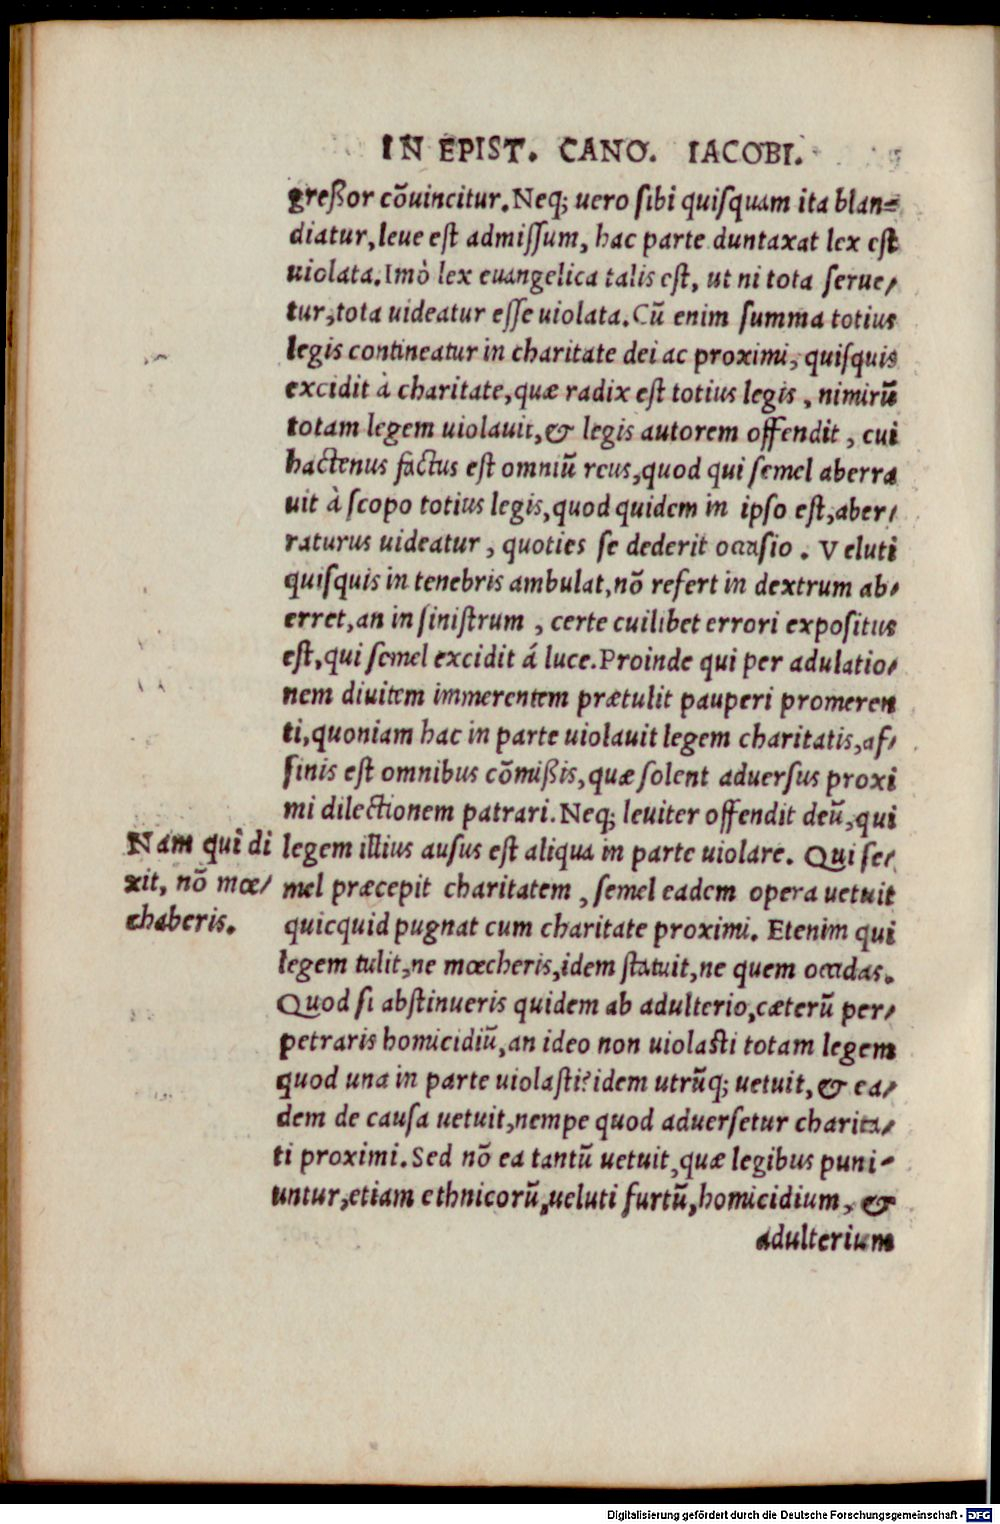 IN EPIST. CANO. IACOBI.
greßor cõuincitur. Neq; uero sibi quisquam ita blan-
diatur, leue est admissum, hac parte duntaxat lex est
uiolata. Imò lex euangelica talis est, ut ni tota serue/
tur, tota uideatur esse uiolata. Cũ enim summa totius
legis contineatur in charitate dei ac proximi, quisquis
excidit à charitate, quæ radix est totius legis, nimirũ
totam legem uiolauit, & legis autorem offendit, cui
hactenus factus est omniũ reus, quod qui semel aberra
uit à scopo totius legis, quod quidem in ipso est, aber/
raturus uideatur, quoties se dederit occasio. Veluti
quisquis in tenebris ambulat, nõ refert in dextrum ab/
erret, an in sinistrum, certe cuilibet errori expositus
est, qui semel excidit á luce. Proinde qui per adulatio/
nem diuitem immerentem prætulit pauperi promeren
ti, quoniam hac in parte uiolauit legem charitatis, af/
finis est omnibus cõmißis, quæ solent aduersus proxi
mi dilectionem patrari. Neq; leuiter offendit deũ, qui
Nam qui di
xit, nõ mœ/
chaberis.
legem illius ausus est aliqua in parte uiolare. Qui se/
mel præcepit charitatem, semel eadem opera uetuit
quicquid pugnat cum charitate proximi. Etenim qui
legem tulit, ne mœcheris, idem statuit, ne quem occidas.
Quod si abstinueris quidem ab adulterio, cæterũ per/
petraris homicidiũ, an ideo non uiolasti totam legem
quod una in parte uiolasti? idem utrũq; uetuit, & ea/
dem de causa uetuit, nempe quod aduersetur charita/
ti proximi. Sed nõ ea tantũ uetuit, quæ legibus puni-
untur, etiam ethnicorũ, ueluti furtũ, homicidium, &
adulterium
Digitalisierung gefördert durch die Deutsche Forschungsgemeinschaft - DFG